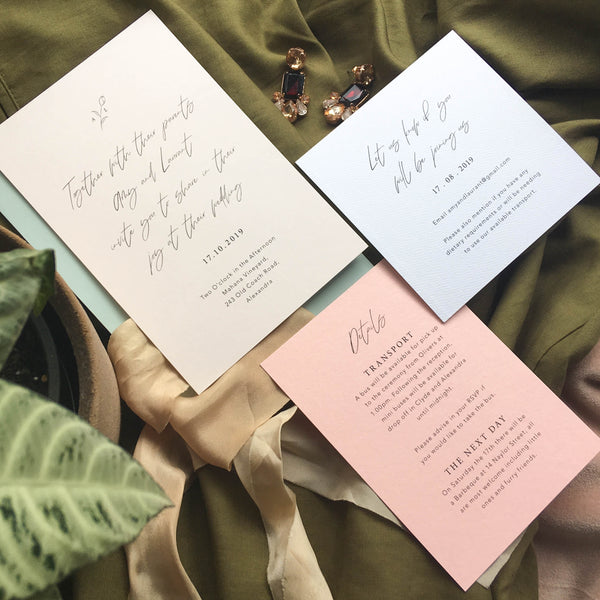 Together with their parents
Amy and Laurent
invite you to share in their
joy at their wedding
17.10.2019
Two O'clock in the Afternoon
Mahana Vineyard,
243 Old Coach Road,
Alexandra
Let us know if you
will be joining us
17 . 08 . 2019
Email amyandlaurant@gmail.com
Please also mention if you have any
dietary requirements or will be needing
to use our available transport.
Details
TRANSPORT
A bus will be available for pick up
to the ceremony from Olivers at
1:00pm. Following the reception,
mini buses will be available for
drop off in Clyde and Alexandra
until midnight.
Please advise in your RSVP if
you would like to take the bus.
THE NEXT DAY
On Saturday the 17th there will be
a Barbeque at 14 Naylor Street, all
are most welcome including little
ones and furry friends.